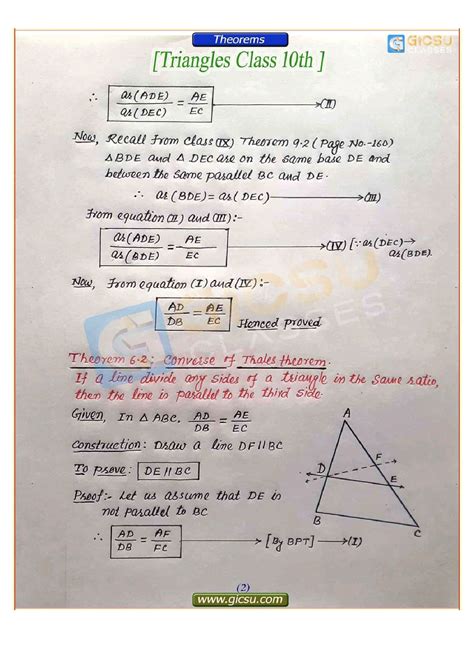 Theorems
GICSU
CLASSES
[Triangles Class 10th ]
∴ ar(ADE)/ar(DEC) = AE/EC ⟶(II)
Now, Recall From Class (IX) Theorem 9.2 (Page No.-160)
∆BDE and ∆ DEC are on the same base DE and
between the same parallel BC and DE.
∴ ar(BDE) = ar(DEC) ⟶(III)
From equation (II) and (III):-
ar(ADE)/ar(BDE) = AE/EC ⟶(IV) [∵ ar(DEC)→
ar(BDE).
Now, From equation (I) and (IV):-
AD/DB = AE/EC Henced proved
GICSU
CLASSES
Theorem 6.2: Converse of Thales theorem.
If a line divide any sides of a triangle in the same ratio,
then the line is parallel to the third side.
Given, In ∆ ABC, AD/DB = AE/EC
Construction: Draw a line DF∥BC
To prove: DE∥BC
Proof:- Let us assume that DE is
not parallel to BC
∴ AD/DB = AF/FC ⟶ [By BPT] ⟶(I)
A
F
D
E
B
C
(2)
www.gicsu.com